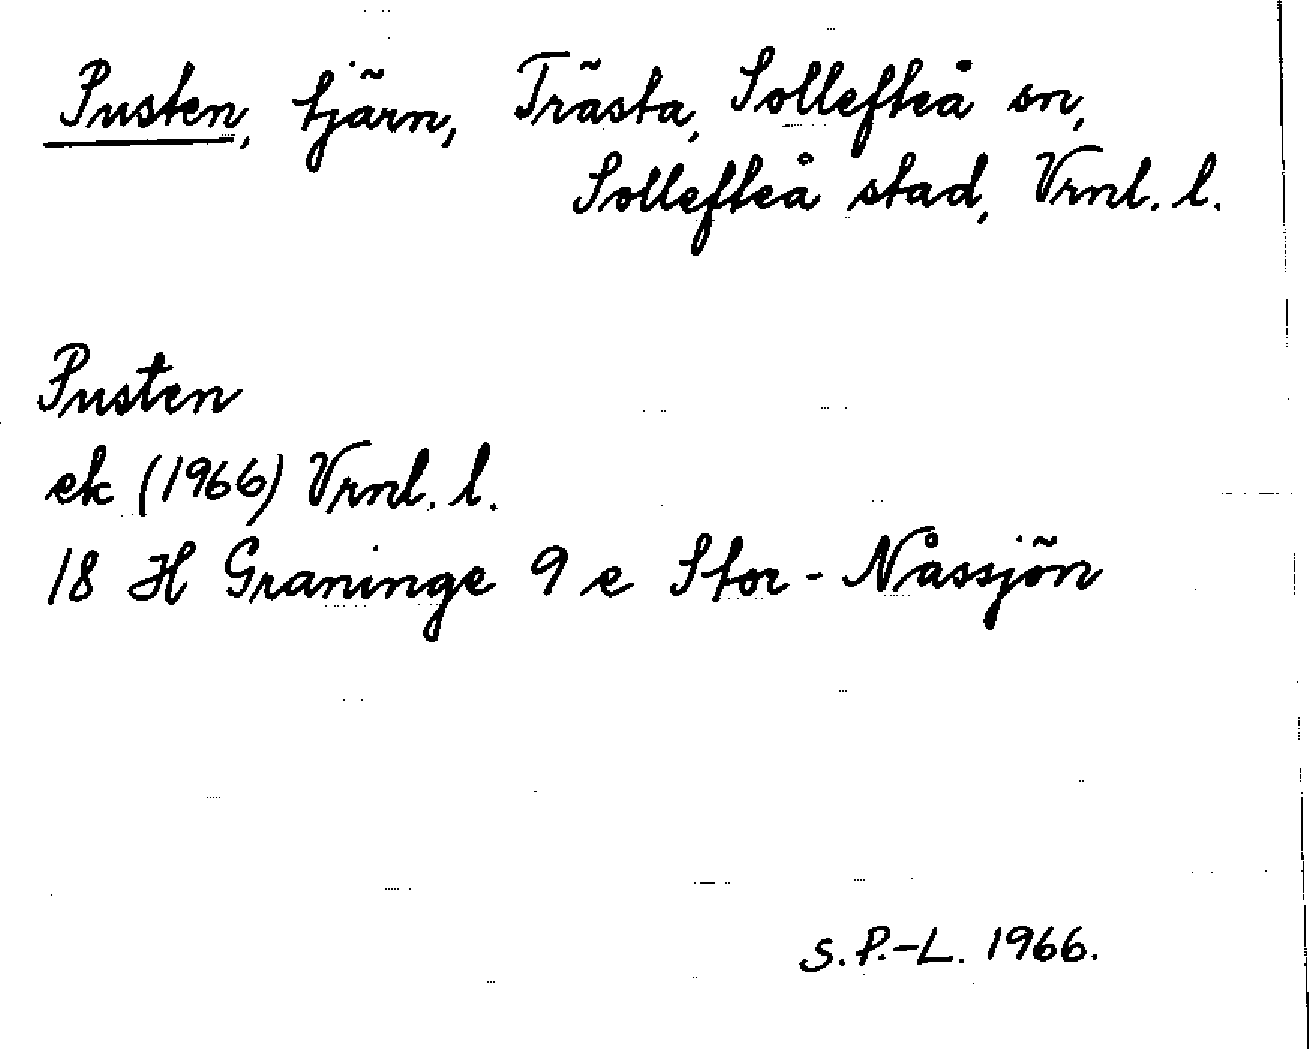 Pusten, tjärn, Trästa, Sollefteå sn,
Sollefteå stad, Vrnl. l.
Pusten
ek (1966) Vrnl. l.
18 H Graninge 9 e Stor-Nåssjön
S. P.-L. 1966.